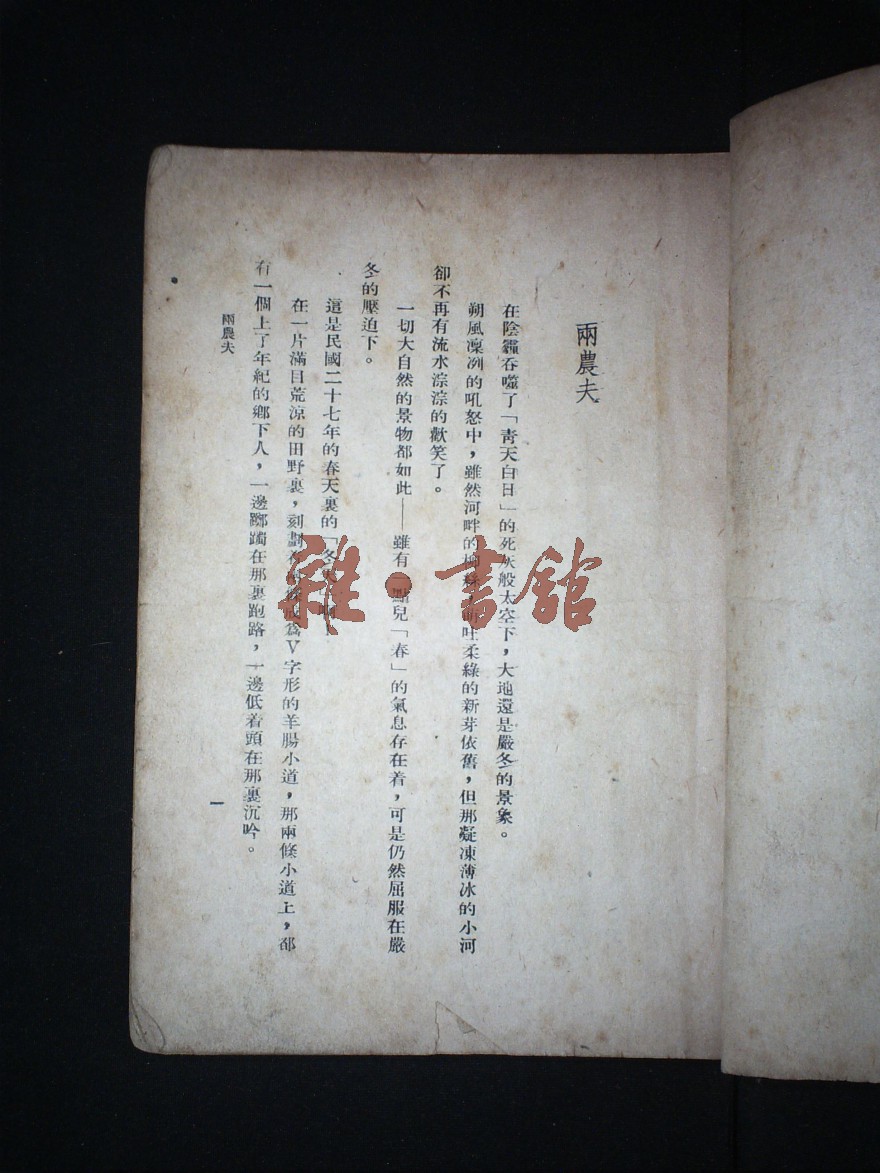 兩農夫
在陰霾吞噬了「靑天白日」的死灰般太空下，大地還是嚴冬的景象。
朔風凜冽的吼怒中，雖然河畔的柳吐柔綠的新芽依舊，但那凝凍薄冰的小河
卻不再有流水淙淙的歡笑了。
一切大自然的景物都如此——雖有一點兒「春」的氣息存在着，可是仍然屈服在嚴
冬的壓迫下。
這是民國二十七年的春天裏的「冬
在一片滿目荒涼的田野裏，刻劃爲V字形的羊腸小道，那兩條小道上，郤
有一個上了年紀的鄉下人，一邊躑躅在那裏跑路，一邊低着頭在那裏沉吟。
兩農夫
一
雜·書館